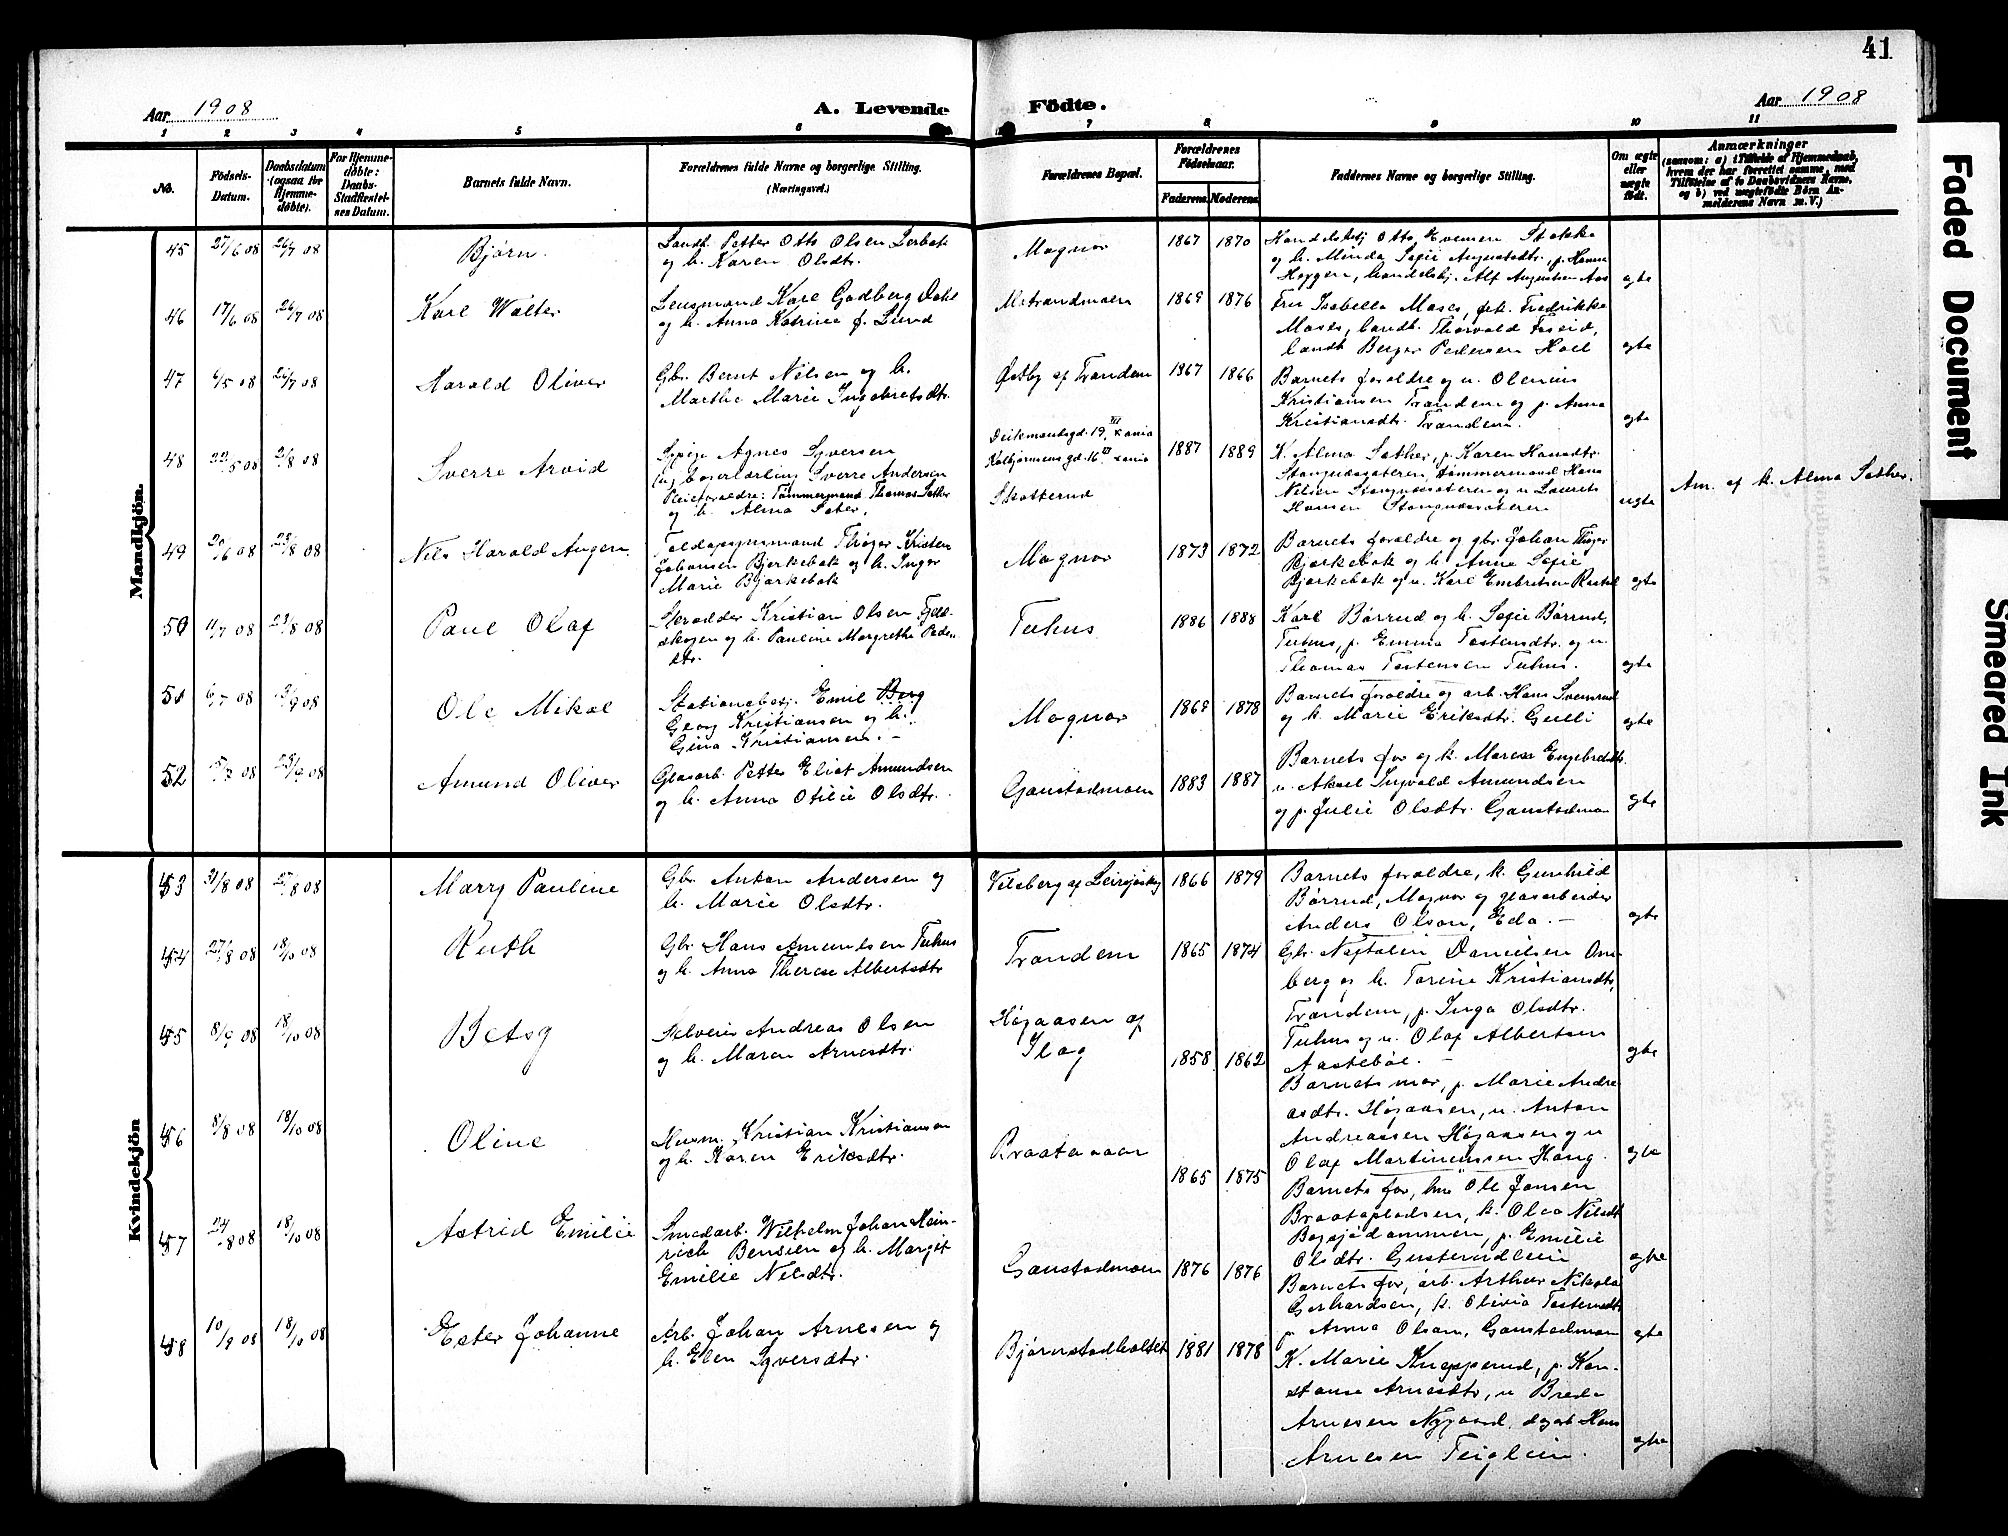 41
Aar 1908
A. Levende
Födte.
Aar 1908
1 2 3 4 5 6 7 8 9 10 11
No.
Födsels-
Datum.
Daabsdatum
(ogsaa for
Hjemme-
döbte).
For Hjemme-
döbte:
Daabs-
Stadfæstel-
ses Datum.
Barnets fulde Navn.
Forældrenes fulde Navne og borgerlige Stilling.
(Næringsvei.)
Forældrenes Bopæl.
Forældrenes
Födselsaar.
Faderens Moderens
Faddernes Navne og borgerlige Stilling.
Om ægte
eller
uægte
födt.
Anmærkninger
(saasom: a) i Tilfælde af Hjemmedaab,
hvem der har forrettet samme, med
Tilföielse af to Daabsvidners Navne,
og b) ved uægtefödte Börn An-
melderens Navn m. V.)
Mandkjön.
45 27/6 08 26/7 08
Bjørn.
Landh. Petter Otto Olsen Lerbak
og h. Karen Olsdtr.
Magnor
1867 1870
Handelsbtj Otto Evensen Stokke
og h. Minda Sofie Augustsdtr., p. Hanna
Heggen, handelsbj. Alf Augustsen Aas
egte
46 17/6 08 26/7 08
Karl Walter
Lensmand Karl Godberg Dahl
og h. Anna Katrine f. Lund
Mastrandmoen
1869 1876
Fru Isabella Moses, frk. Fredrikke
Moses, landh. Thorvald Foseid,
landh Berger Pedersen Hoel
egte
47 6/5 08 26/7 08
Harald Oliver
Gbr. Bernt Nilsen og h.
Marthe Marie Ingebretsdtr.
Østby af Trandem
1867 1866
Barnets foraldre og u. Olenius
Kristiansen Trandem og p. Anna
Kristiansdtr. Trandem.
egte
48 22/5 08 2/8 08
Sverre Arvid
Sypige Agnes Syversen
(u) Bagerlærling Sverre Andersen
Pleieforaldre: Tømmermand Thomas Sæther
og h. Alma Sæter.
Deikmandsgd. 19, VII K.ania
Kalbjørnsens gd. 16 VI K.ania
Skotterud
1887 1889
K. Alma Sæther, p. Karen Hansdtr.
Stangnæssæteren, tømmermand Hans
Nilsen Stangnæssæteren og u Laurits
Hansen Stangnæssæteren
uegte
Anm. af k. Alma Sæther.
49 20/6 08 23/8 08
Nils Harald Jørgen
Toldopsynsmand Thøger Kristen
Johansen Bjerkebæk og h. Inger
Marie Bjerkebæk
Magnor
1873 1872
Barnets foraldre og gbr. Johan Thøger
Bjerkebæk og h. Anna Sofie
Bjerkebæk og u. Karl Embretsen Rastad
egte
50 11/7 08 23/8 08
Paul Olaf
Skrædder Kristian Olsen Fjeld-
skogen og h. Pauline Margrethe Peders
dtr.
Tuhus
1886 1888
Karl Børrud og h. Sofie Børrud,
Tuhus, p. Emma Tostensdtr. og u.
Thomas Tostensen Tuhus.
egte
51 6/7 08 13/9 08
Ole Mikal
Stationsbetj. Emil Berg
Georg Kristiansen og h.
Gina Kristiansen. –
Magnor
1869 1878
Barnets foraldre og arb. Hans Svensrud
og k. Marie Eriksdtr. Gulli
egte
52 15/7 08 25/9 08
Amund Oliver
Glasarb. Petter Eliot Amundsen
og h. Anna Otilie Olsdtr.
Gaustadmoen
1883 1887
Barnets far og k. Maren Engebretsdtr.
u. Aksel Ingvald Amundsen
og p. Julie Olsdtr. Gaustadmoen
egte
Kvindekjön
53 31/8 08 27/8 08
Marry Pauline
Gbr. Anton Andersen og
h. Marie Olsdtr.
Vilsberg af Leirsjøskog
1866 1879
Barnets foraldre, k. Gunhild
Børrud, Magnor og glasarbeider
Anders Olson, Eda. –
egte
54 27/8 08 18/10 08
Ruth
Gbr. Hans Amundsen Tuhus
og h. Anna Therese Albertsdtr
Trandem
1865 1874
Gbr. Neftalin Danielsen Om-
berg og h. Torine Kristiansdtr,
Trandem, p. Inga Olsdtr.
Tuhus og u. Olaf Albertsen
Aastebøl. –
egte
55 8/9 08 18/10 08
Betsy
Selveier Andreas Olsen
og h. Maren Arnesdtr.
Høgaasen af
Ilag
1858 1862
Barnets mor, p. Marie Andre
asdtr. Høgaasen, u. Anton
Andreassen Høgaasen og u
Olaf Martinussen Haug.
egte
56 8/8 08 18/10 08
Oline
Husm. Kristian Kristiansen
og h. Karen Eriksdtr.
Braatanaar
1865 1875
Barnets far, hm Ole Jansen
Braatapladsen, k. Olea Nilsdtr
Bogsjødammen, p. Emilie
Olsdtr. Gusterudleien
egte
57 24/8 08 18/10 08
Astrid Emilie
Smedarb. Wilhelm Johan Hein-
rich Bensien og h. Margit
Emilie Nilsdtr.
Gaustadmoen
1876 1876
Barnets far, arb. Arthur Nikolai
Gerhardsen, k. Olivia Tostensdtr.
p. Anna Olsen, Gaustadmoen
egte
58 10/9 08 18/10 08
Ester Johanne
Arb. Johan Arnesen og
h. Elen Syversdtr.
Bjørnstadholtet
1881 1878
K. Marie Knapperud, p. Kon-
stanse Arnesdtr, u Brede
Arnesen Nygaard, dagarb Hans
Arnesen Teiglien.
egte
Faded Document
Smeared Ink